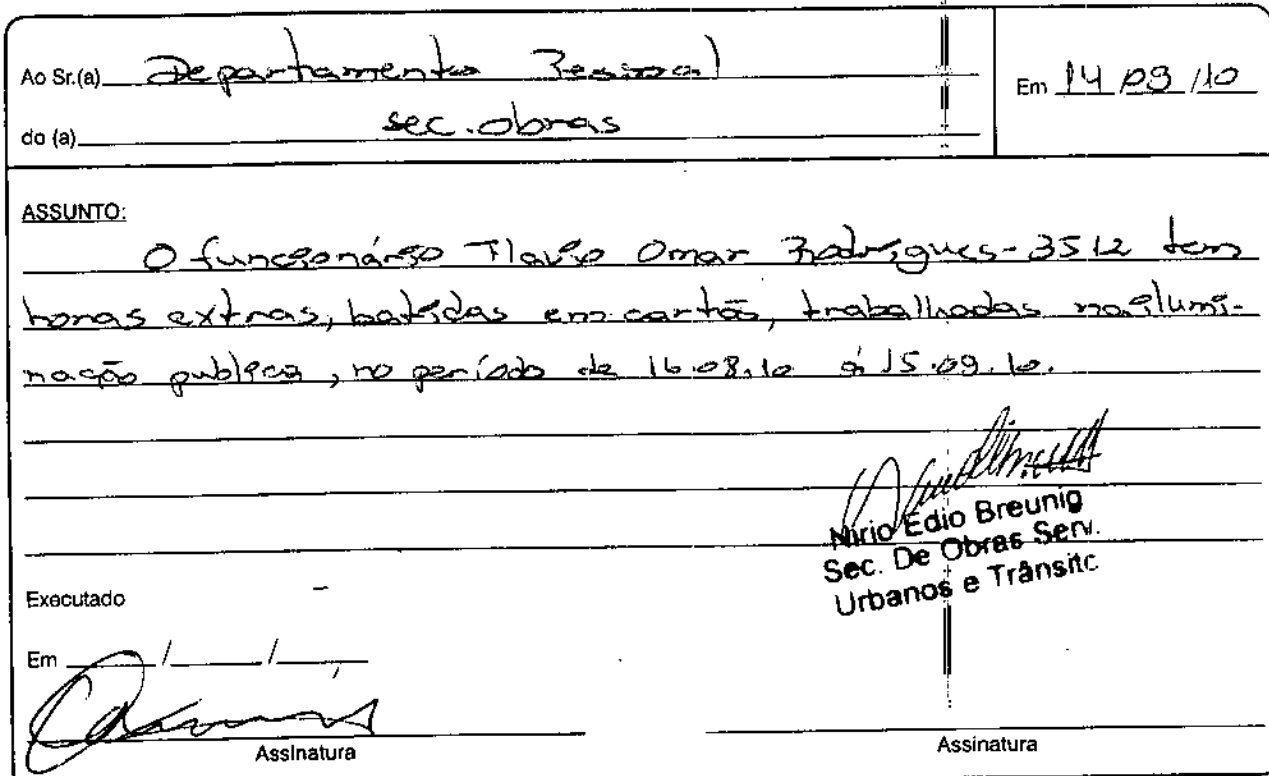 Ao Sr.(a) Departamento Pessoal
Em 14/09/10
do (a) sec. obras
ASSUNTO:
O funcionário Flavio Omar Rodrigues - 3512 tem
horas extras, batidas em cartão, trabalhadas na ilumi-
nação publica, no período de 16.08.10 á 15.09.10.
Nirio Edio Breunig
Sec. De Obras Serv.
Urbanos e Trânsito
Executado
Em / /
Assinatura
Assinatura